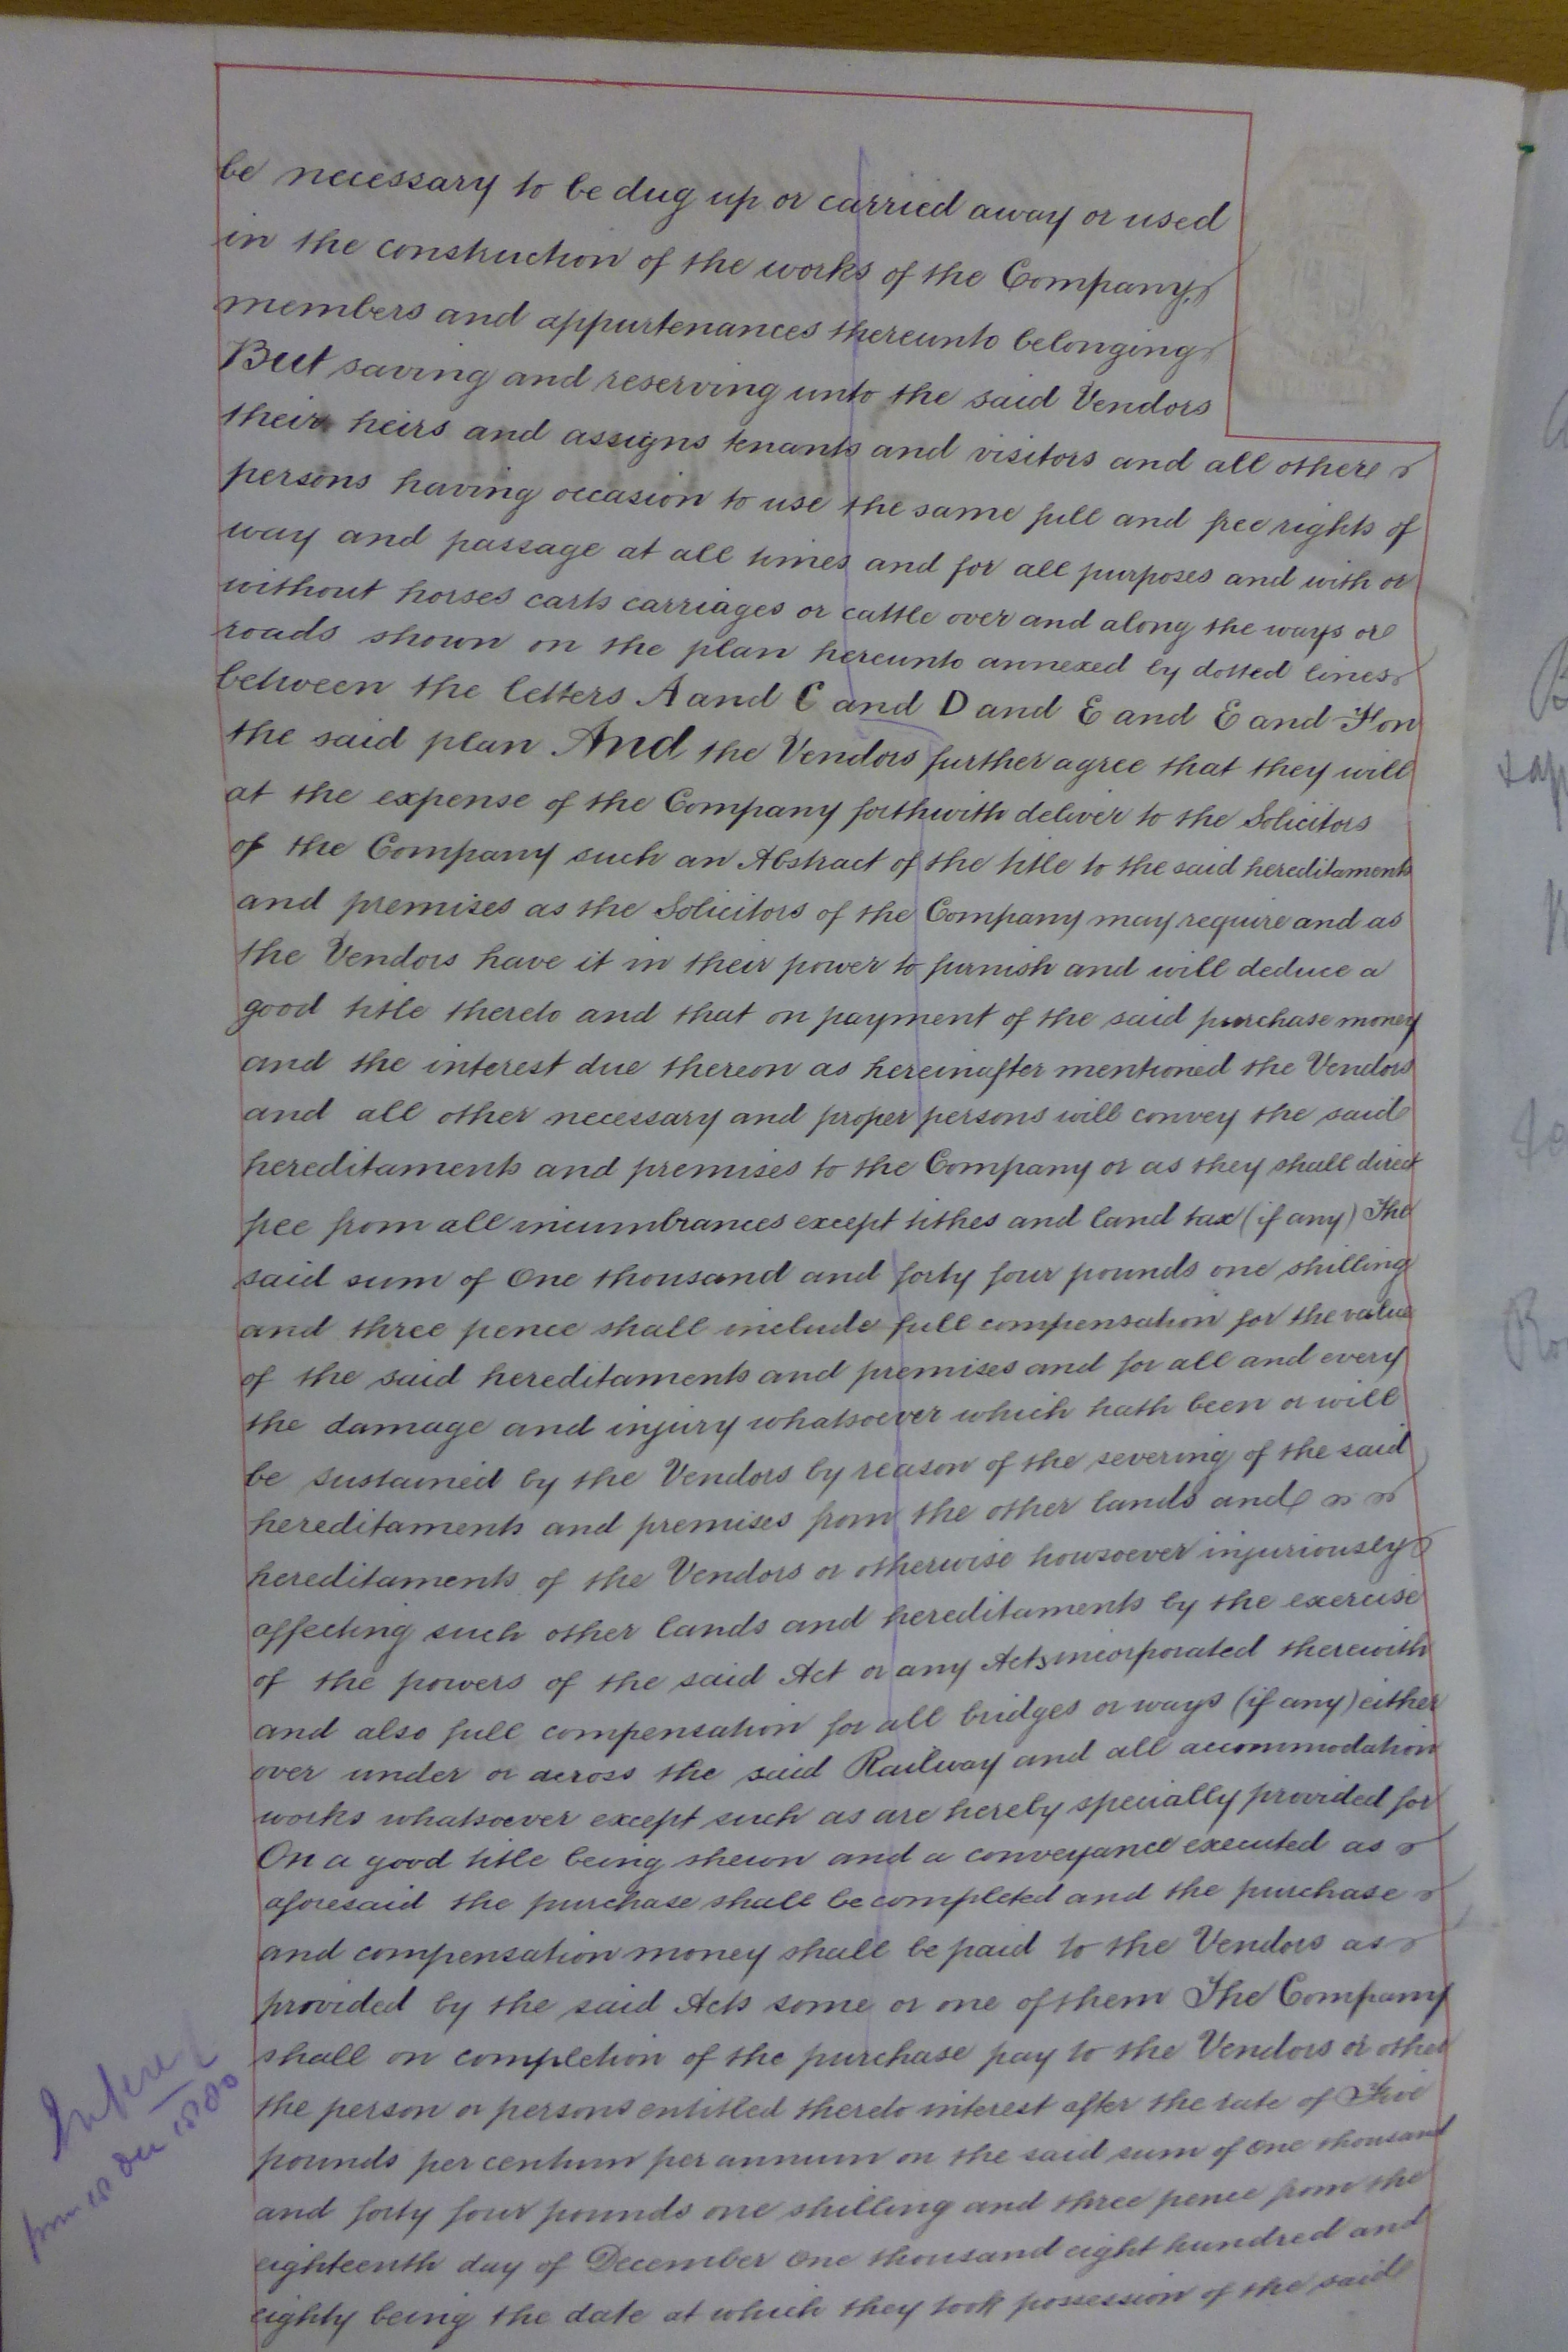 be necessary to be dug up or carried away or used
in the construction of the works of the Company,
members and appurtenances thereunto belonging
But saving and reserving unto the said Vendors
their heirs and assigns tenants and visitors and all other
persons having occasion to use the same full and free rights of
way and passage at all times and for all purposes and with or
without horses carts carriages or cattle over and along the ways or
roads shown on the plan hereunto annexed by dotted lines
between the letters A and C and D and E and E and F on
the said plan And the Vendors further agree that they will
at the expense of the Company forthwith deliver to the Solicitors
of the Company such an Abstract of the title to the said hereditaments
and premises as the Solicitors of the Company may require and as
the Vendors have it in their power to furnish and will deduce a
good title thereto and that on payment of the said purchase money
and the interest due thereon as hereinafter mentioned the Vendors
and all other necessary and proper persons will convey the said
hereditaments and premises to the Company or as they shall direct
free from all incumbrances except tithes and land tax (if any) The
said sum of One thousand and forty four pounds one shilling
and three pence shall include full compensation for the value
of the said hereditaments and premises and for all and every
the damage and injury whatsoever which hath been or will
be sustained by the Vendors by reason of the severing of the said
hereditaments and premises from the other lands and
hereditaments of the Vendors or otherwise howsoever injuriously
affecting such other lands and hereditaments by the exercise
of the powers of the said Act or any Acts incorporated therewith
and also full compensation for all bridges or ways (if any) either
over under or across the said Railway and all accommodation
works whatsoever except such as are hereby specially provided for
On a good title being shewn and a conveyance executed as
aforesaid the purchase shall be completed and the purchase
and compensation money shall be paid to the Vendors as
provided by the said Acts some or one of them The Company
shall on completion of the purchase pay to the Vendors or other
the person or persons entitled thereto interest after the rate of Five
pounds per centum per annum on the said sum of One thousand
and forty four pounds one shilling and three pence from the
eighteenth day of December One thousand eight hundred and
eighty being the date at which they took possession of the said
Interest
from 18 Dec 1880